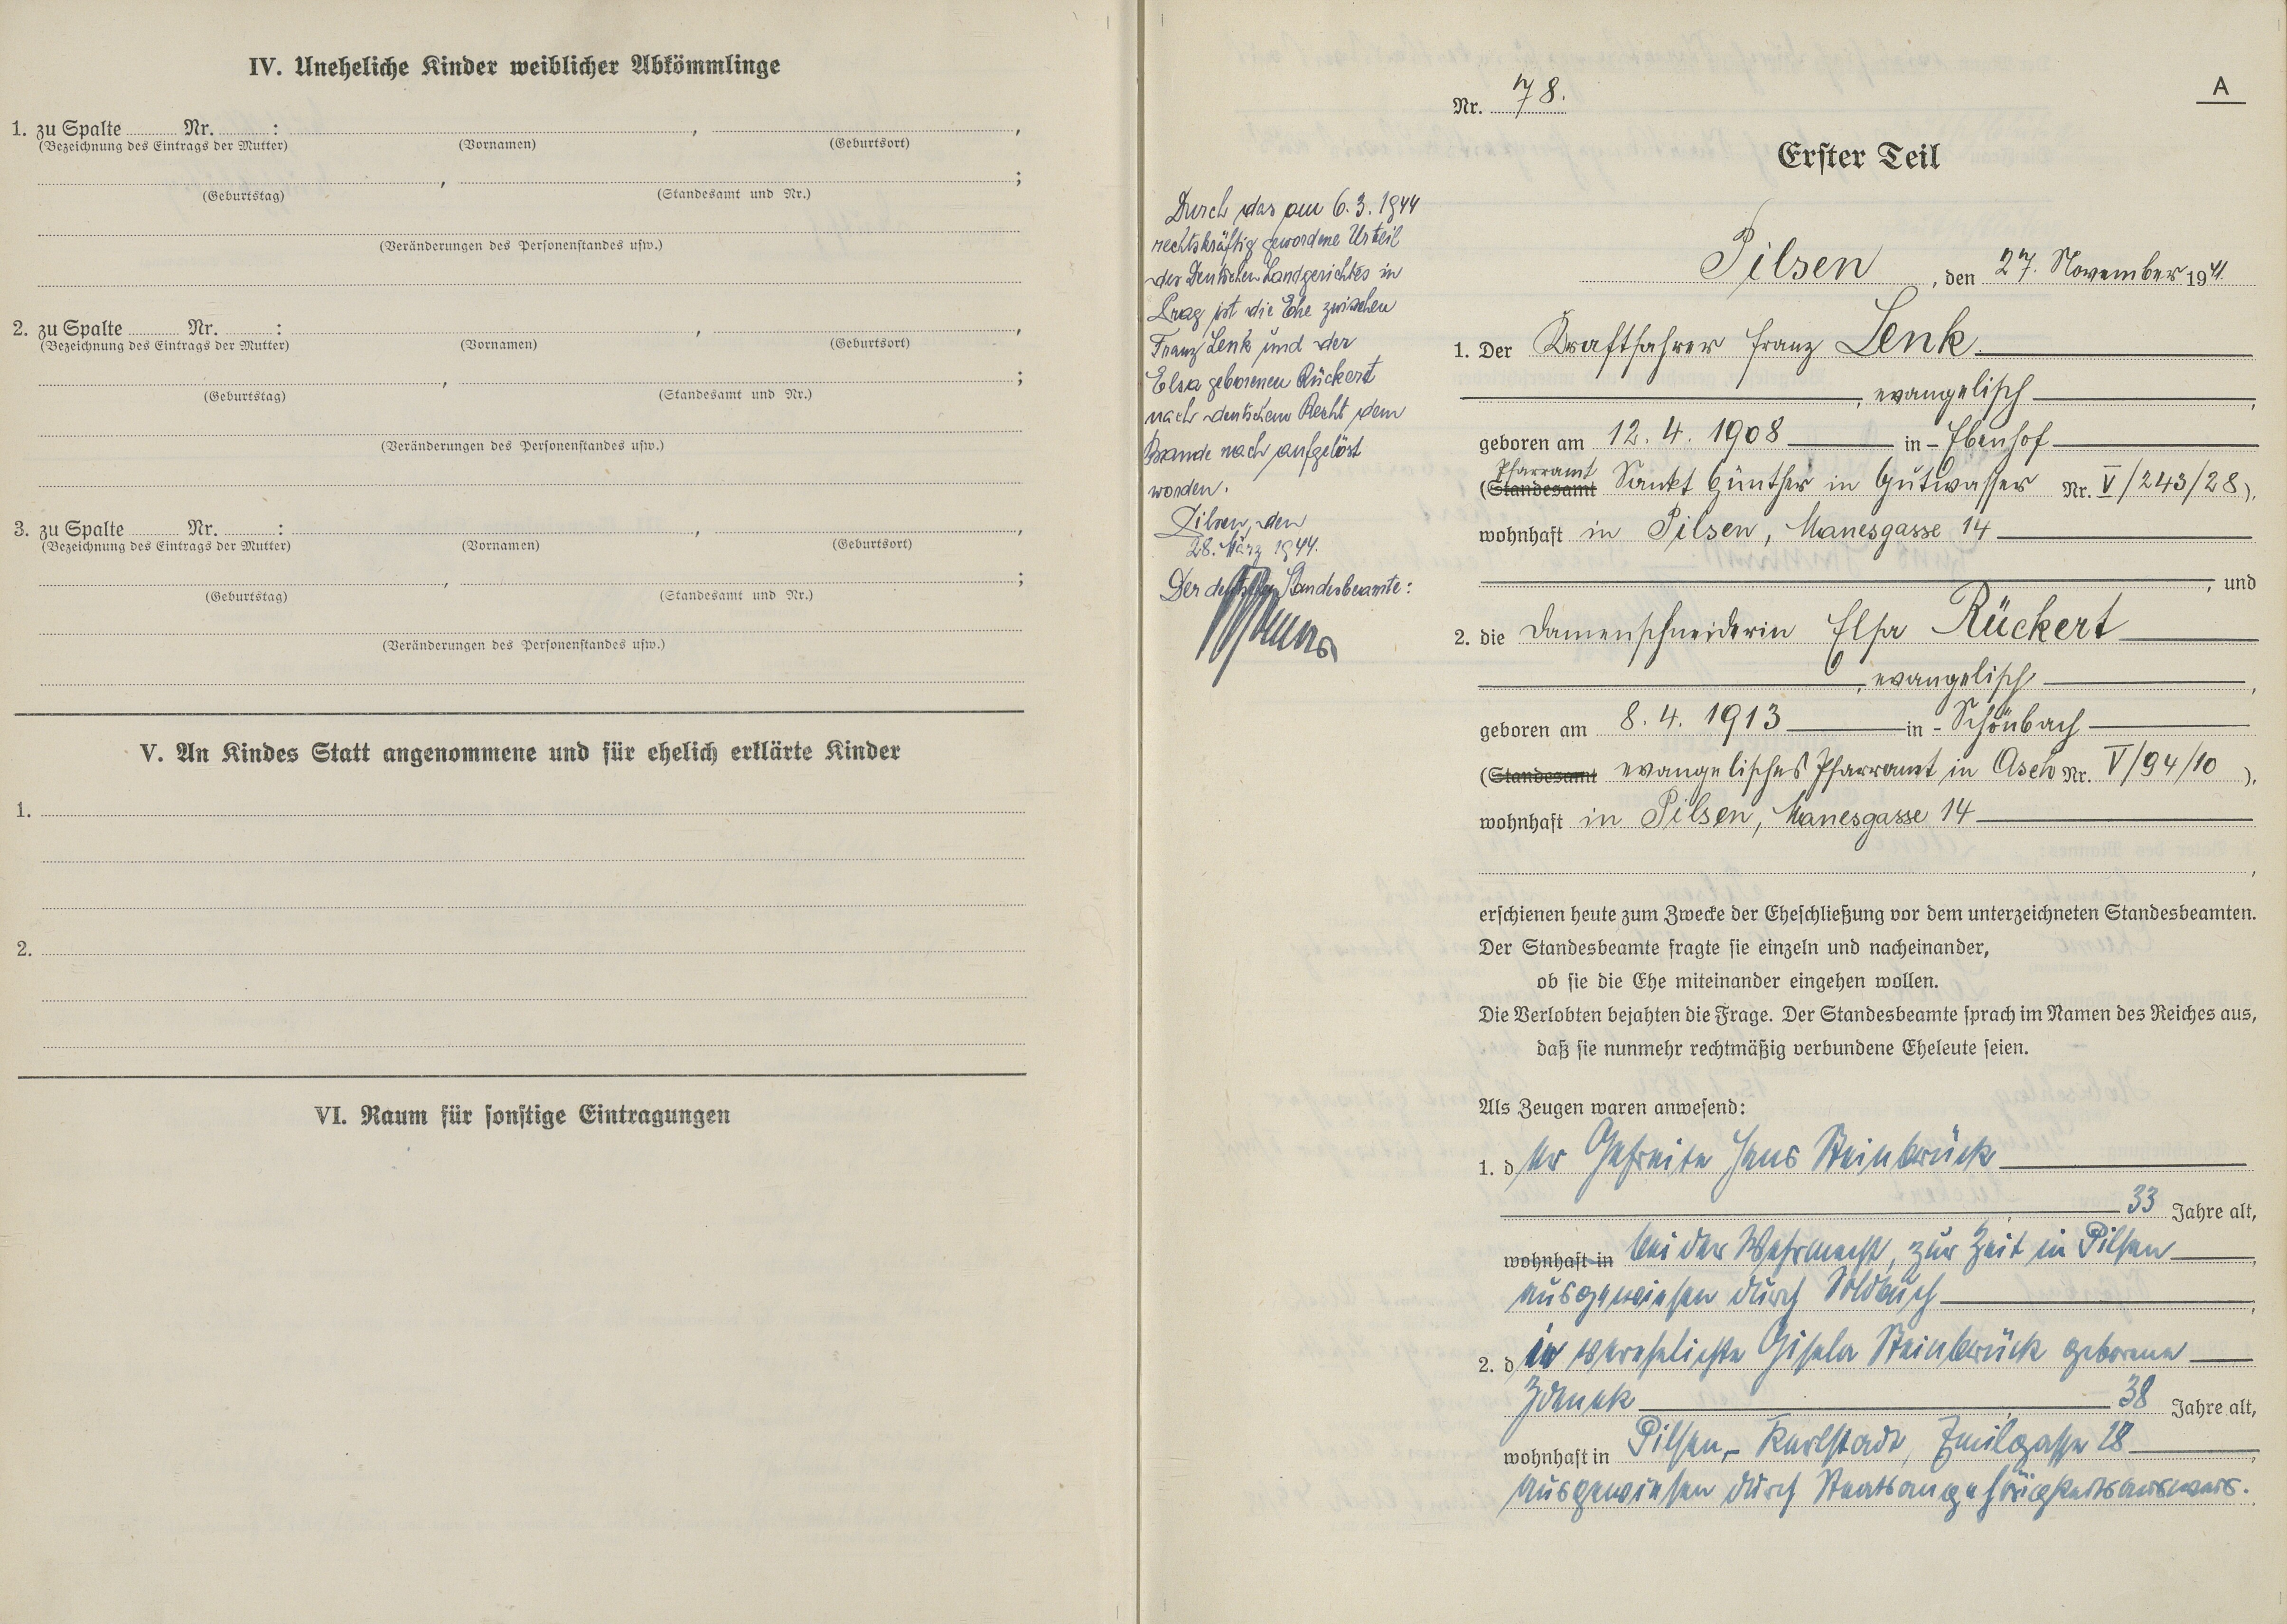 IV. Uneheliche Kinder weiblicher Abkömmlinge
1. zu Spalte ........ Nr. ........ : ........ , ........ ,
(Bezeichnung des Eintrags der Mutter) (Vornamen) (Geburtsort)
........ , ........ ;
(Geburtstag) (Standesamt und Nr.)
(Veränderungen des Personenstandes usw.)
2. zu Spalte ........ Nr. ........ : ........ , ........ ,
(Bezeichnung des Eintrags der Mutter) (Vornamen) (Geburtsort)
........ , ........ ;
(Geburtstag) (Standesamt und Nr.)
(Veränderungen des Personenstandes usw.)
3. zu Spalte ........ Nr. ........ : ........ , ........ ,
(Bezeichnung des Eintrags der Mutter) (Vornamen) (Geburtsort)
........ , ........ ;
(Geburtstag) (Standesamt und Nr.)
(Veränderungen des Personenstandes usw.)
V. An Kindes Statt angenommene und für ehelich erklärte Kinder
1.
2.
VI. Raum für sonstige Eintragungen
A
Nr. 78.
Erster Teil
Durch das am 6.3.1944
rechtskräftig gewordene Urteil
des Deutschen Landgerichtes in
Prag ist die Ehe zwischen
Franz Lenk und der
Elsa geborenen Rückert
nach deutschem Recht dem
Bande nach aufgelöst
worden.
Pilsen, den
28. März 1944.
Der deutsche Standesbeamte:
Pilsen, den 27. November 1941.
1. Der Kraftfahrer Franz Lenk
, evangelisch ,
geboren am 12. 4. 1908 in - Ebenhof
Pfarramt
(Standesamt Sankt Günther in Gutwasser Nr. V/243/28),
wohnhaft in Pilsen, Manesgasse 14
, und
2. die Damenschneiderin Elsa Rückert
, evangelisch ,
geboren am 8. 4. 1913 in - Schönbach
(Standesamt evangelisches Pfarramt in Asch Nr. V/94/10 ),
wohnhaft in Pilsen, Manesgasse 14
,
erschienen heute zum Zwecke der Eheschließung vor dem unterzeichneten Standesbeamten.
Der Standesbeamte fragte sie einzeln und nacheinander,
ob sie die Ehe miteinander eingehen wollen.
Die Verlobten bejahten die Frage. Der Standesbeamte sprach im Namen des Reiches aus,
daß sie nunmehr rechtmäßig verbundene Eheleute seien.
Als Zeugen waren anwesend:
1. der Gefreite Hans Steinbrück
33 Jahre alt,
wohnhaft in bei der Wehrmacht, zur Zeit in Pilsen ,
ausgewiesen durch Soldbuch ,
2. die verehelichte Gisela Steinbrück geborene
Zdenek 38 Jahre alt,
wohnhaft in Pilsen,- Karlstadt, Emilgasse 28 ,
ausgewiesen durch Staatsangehörigkeitsausweis.